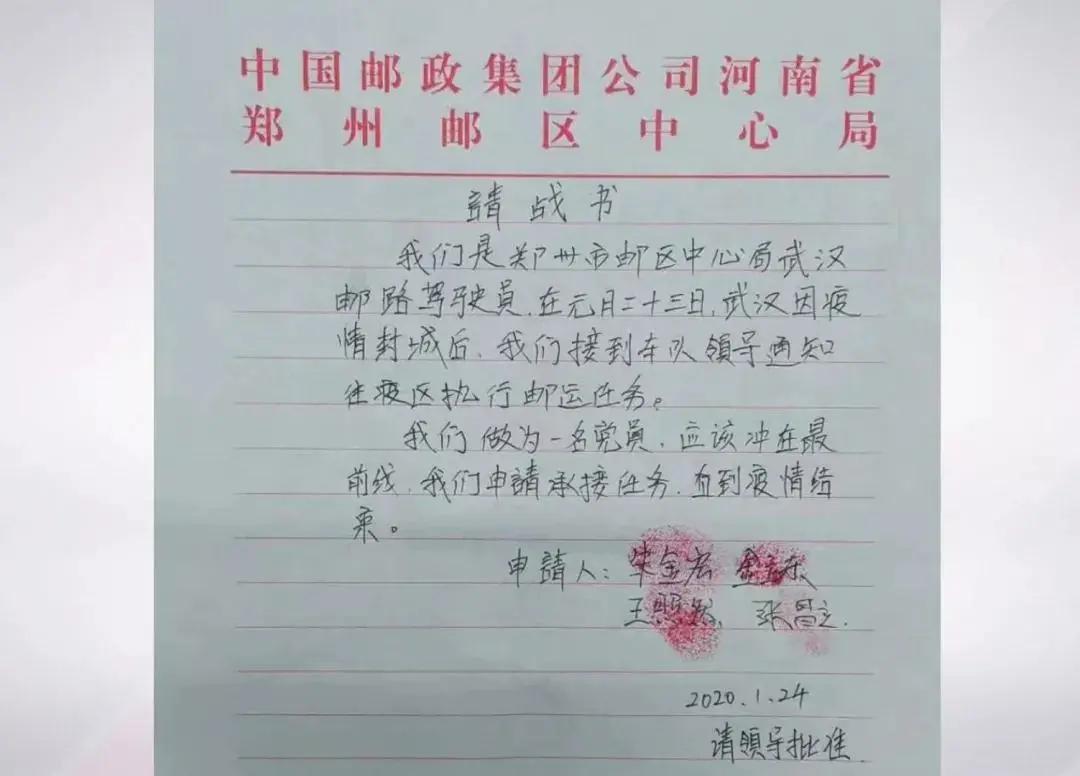 中国邮政集团公司河南省
郑州邮区中心局
請战书
我们是郑州市邮区中心局武汉
邮路驾驶员,在元月二十三日,武汉因疫
情封城后,我们接到车队領导通知
往疫区执行邮运任务。
我们做为一名党员,应该冲在最
前线,我们申請承接任务,直到疫情结
束。
申請人:金宏
王照 张昌立.
2020.1.24
请領导批准